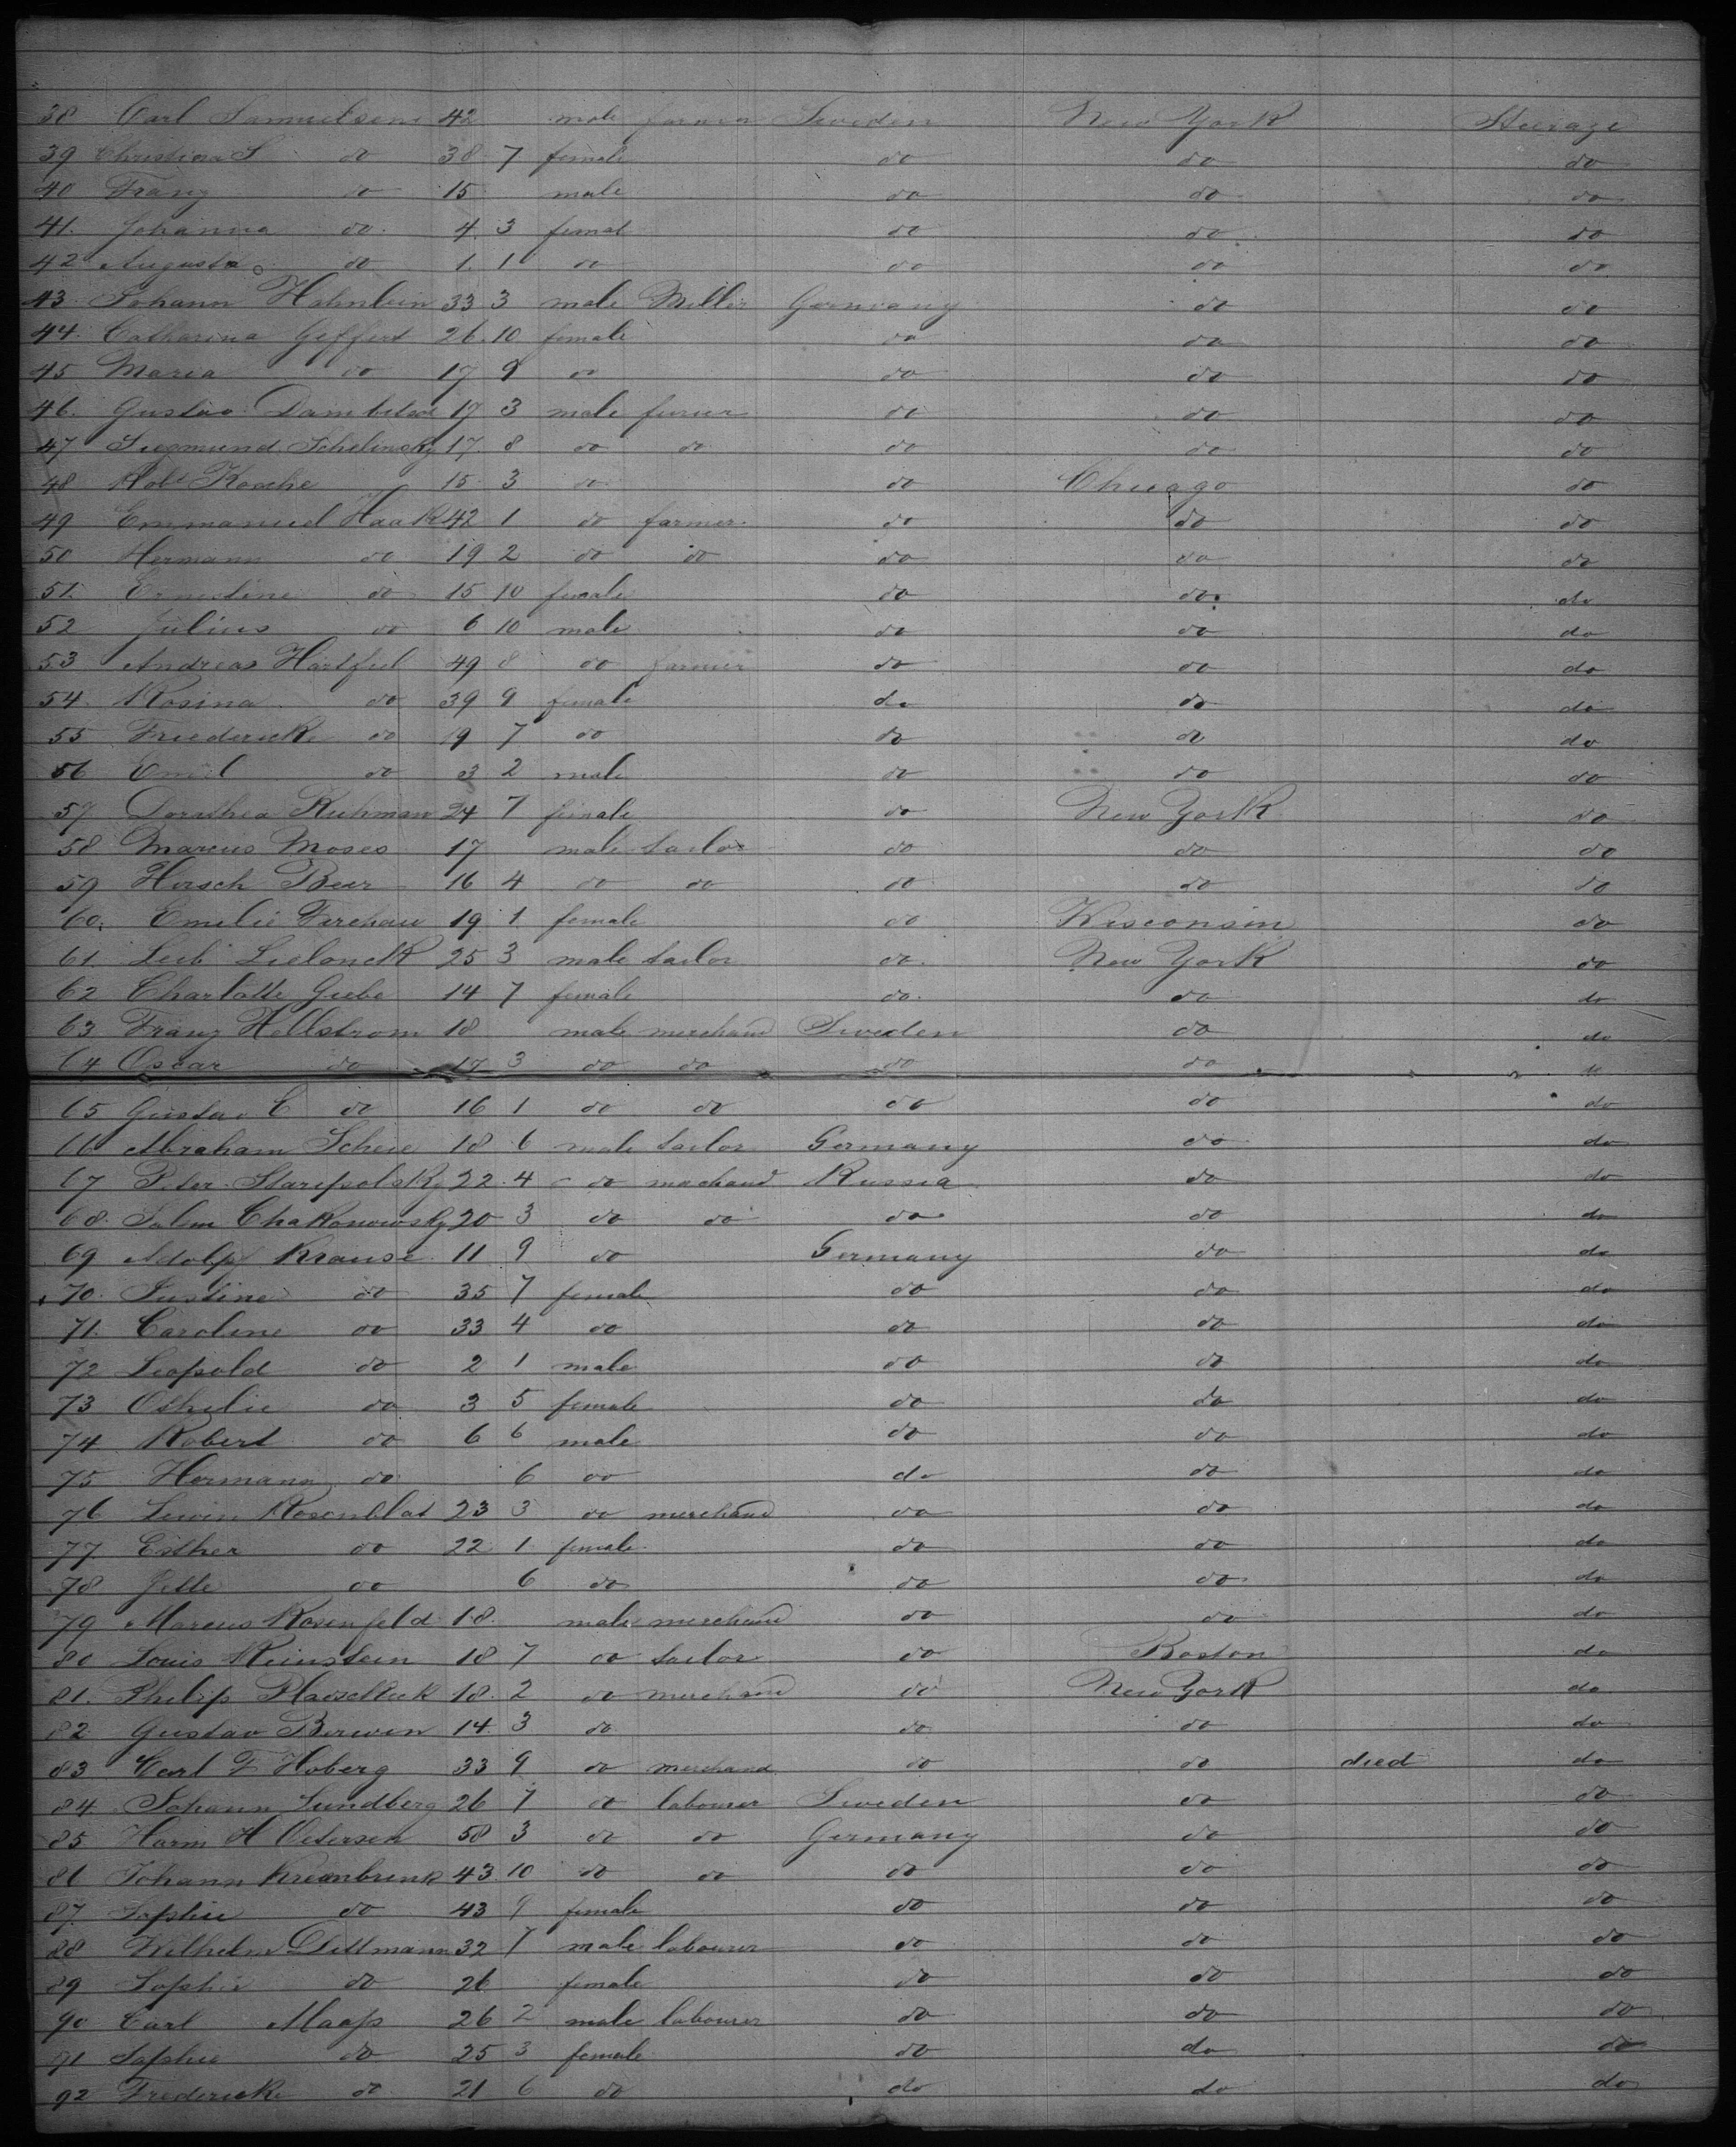 38 Carl Samuelsene 42 male farmer Sweden New York Steerage
39 Christina S do 38 7 female do do do
40 Franz do 15 male do do do
41. Johanna do. 4. 3 femal do do do
42 Augusta do 1. 1 do do do do
43. Johann Hahnlein 33 3 male Miller Germany do do
44. Catharina Geffert 26. 10 female do do do
45 Maria do 17 9 do do do do
46. Gustav 17 3 male do do do
47 Siegmund Schelinsky 17 8 do do do do do
48 Robt Kosche 15 3 do do Chicago do
49 Emmanuel Haak 42 1 do farmer. do do do
50 Hermann do 19 2 do do do do do
51. Ernestine do 15 10 female do do. do
52 Julius do 6 10 male do do do
53 Andreas Hartfiel 49 8 do farmer do do do
54. Rosina do 39 9 female do do do
55 Friedericke do 19 7 do do do do
56 Emil do 3 2 male do do do
57 Dorothea Kuhman 24 7 female do New York do
58 Marcus Moses 17 male tailor do do do
59 Hirsch Beer 16 4 do do do do do
60. Emilie 19. 1 female do Wisconsin do
61. Leib 25 3 male tailor do. New York do
62 Charlotte Giebe 14 7 female do. do do
63 Franz Hellstrom 18 male merchand Sweden do do
64 Oscar do 17 3 do do do do do
65 Gustav C do 16 1 do do do do do
66 Abraham Scheie 18 6 male tailor Germany do do
67 Peter Staripolsky 22. 4 do machand Russia do do
68. Salem Chakonowsky 20 3 do do do do do
69 Adolpf Krause 11 9 do Germany do do
70. Justine do 35 7 female do do do
71. Caroline do 33 4 do do do do
72 Leopold do 2 1 male do do do
73 Othilie do 3 5 female do do do
74 Robert do 6 6 male do do do
75 Hermann do 6 do do do do
76 Lewin Rosenblat 23 3 do merchand do do do
77 Esther do 22 1 female do do do
78 Jette do 6 do do do do
79 Marcus Rosenfeld 18. male merchand do do do
80 Louis Reinstein 18 7 do tailor do Boston do
81. Philip 18. 2 do merchand do New York do
82. Gustav Berwin 14. 3 do do do do
83 Carl F Hoberg 33 9 do merchand do do died do
84 Johann Lundberg 26 7 do labourer Sweden do do
85 Harm H Petersen 58 3 do do Germany do do
86 Johann Kreenbrink 43. 10 do do do do do
87. Sophie do 43 9 female do do do
88 Wilhelm Dittmann 32 7 male labourer do do do
89 Sophie do 26 female do do do
90 Carl Maass 26 2 male labourer do do do
91 Sophie do 25 3 female do do do
92 Fredericke do 21 6 do do do do